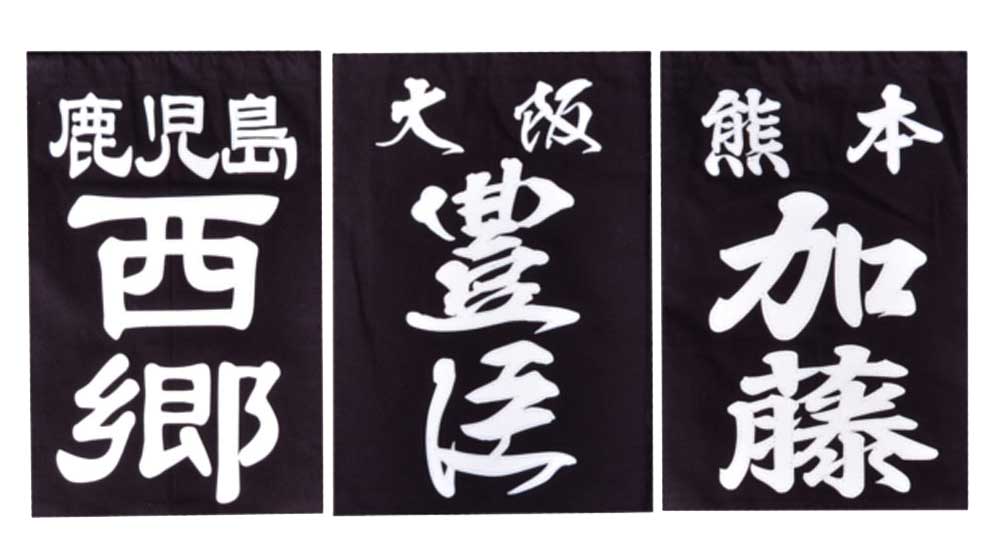 鹿児島
西郷
大阪
豊臣
熊本
加藤